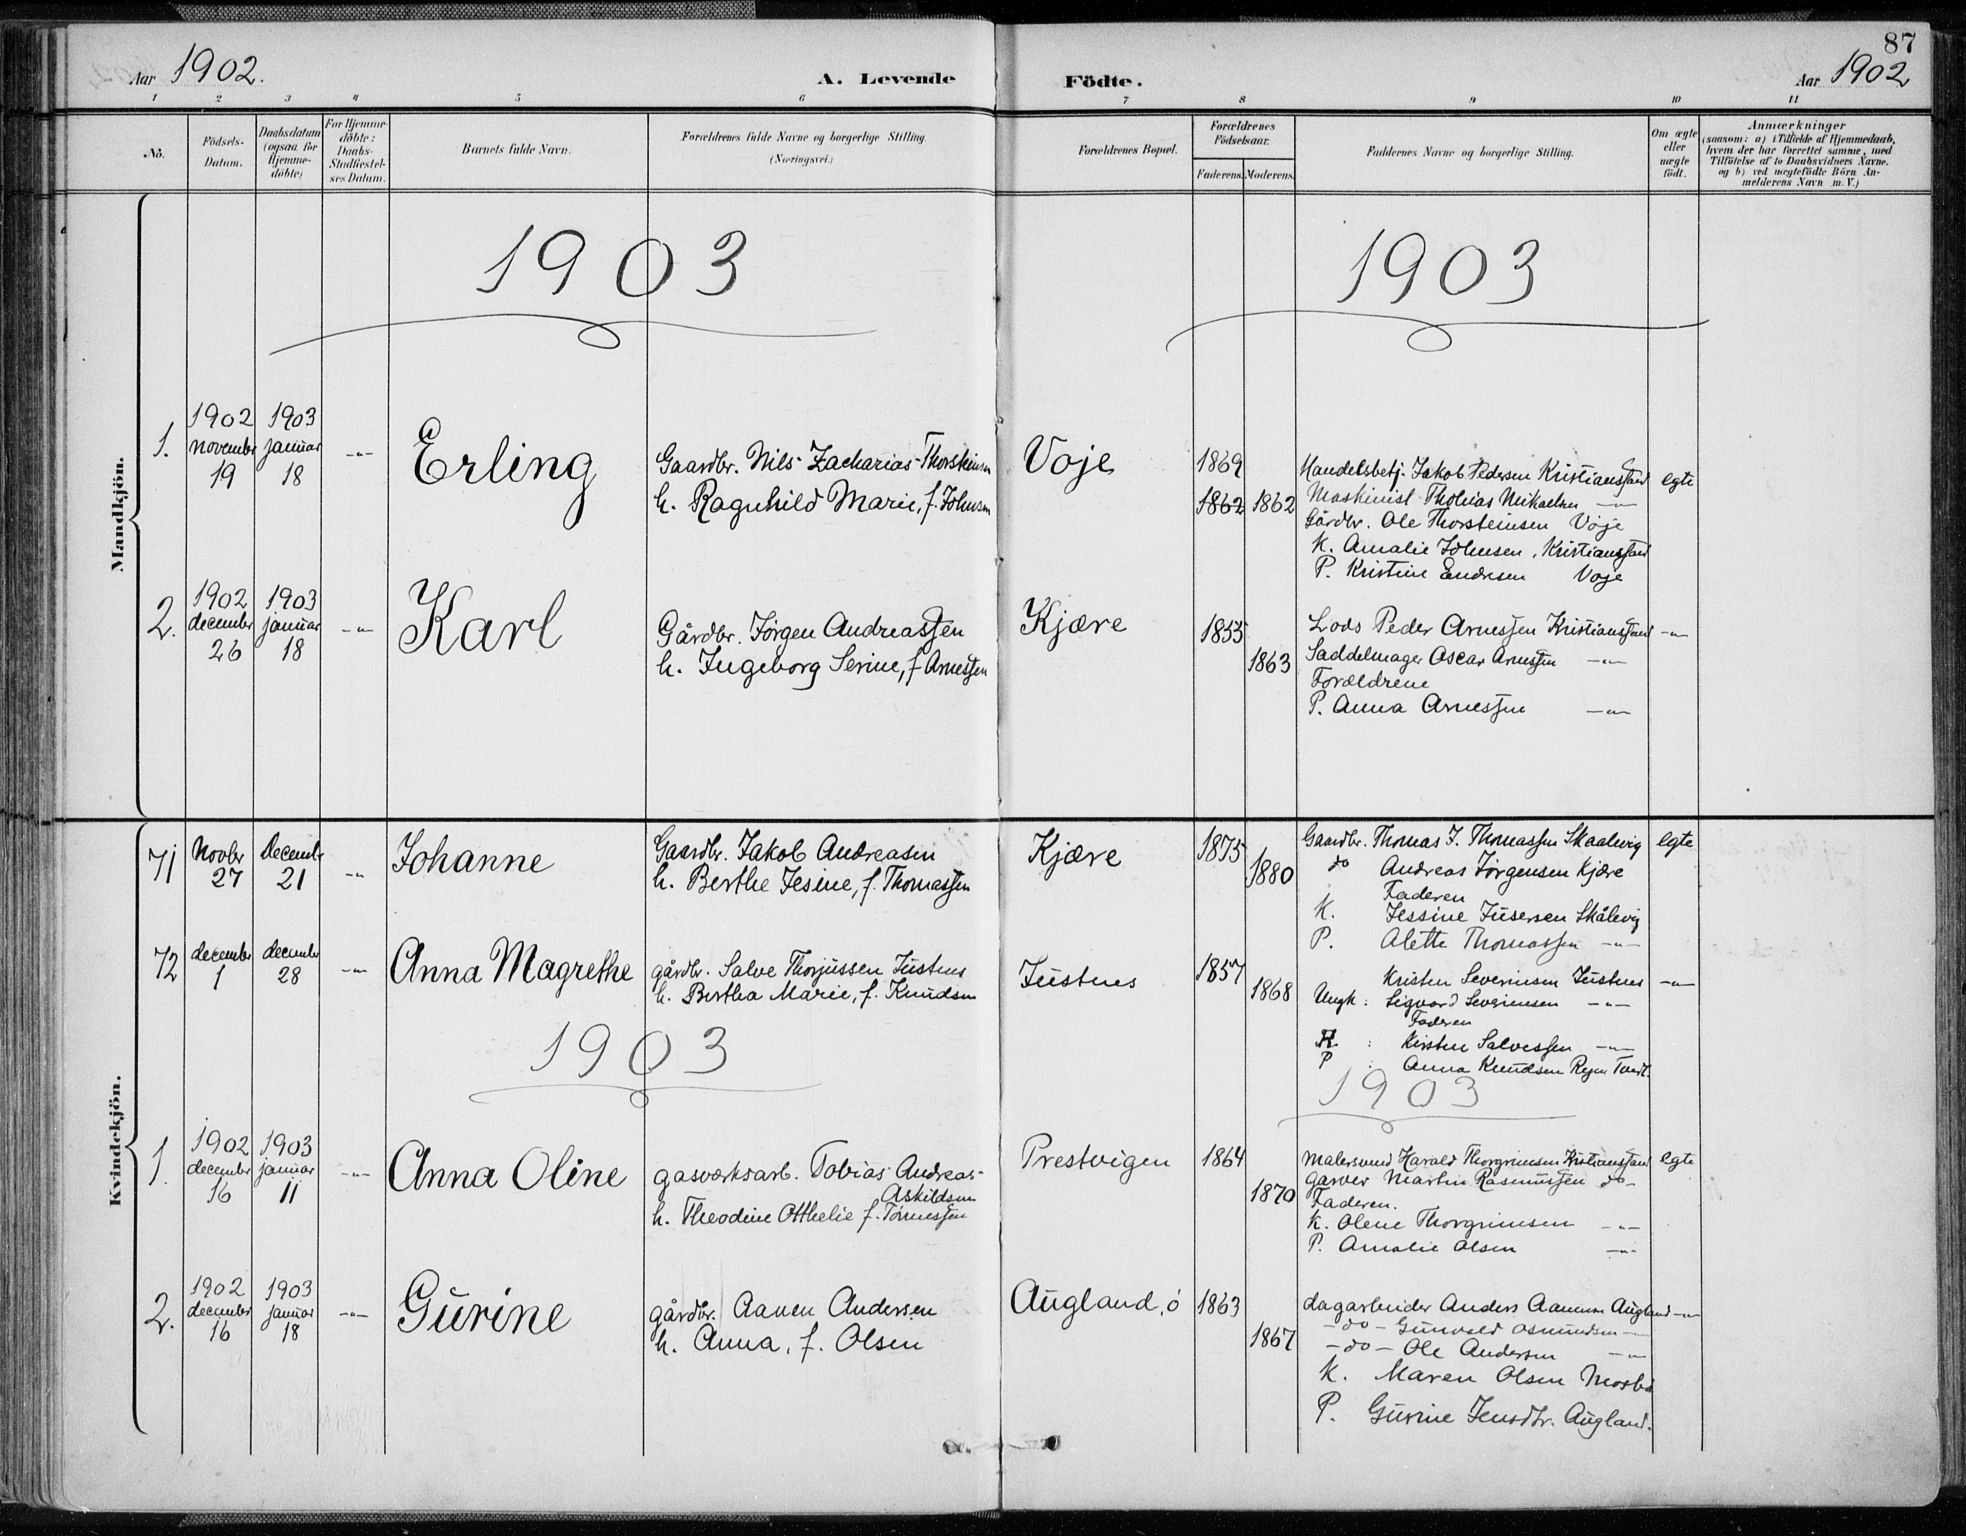 87
Aar 1902.
A. Levende Födte.
Aar 1902
1 2 3 4 5 6 7 8 9 10 11
No.
Födsels-Datum.
Daabsdatum (ogsaa for Hjemme-döbte)
For Hjemme-döbte: Daabs-Stadfæstel-ses Datum.
Barnets fulde Navn.
Forældrenes fulde Navne og borgerlige Stilling. (Næringsvei.)
Forældrenes Bopæl.
Forældrenes Födselsaar.
Faderens. Moderens.
Faddernes Navne og borgerlige Stilling.
Om ægte eller uægte födt.
Anmærkninger
(saasom: a) i Tilfælde af Hjemmedaab, hvem der har forrettet samme, med Tilföielse af to Daabsvidners Navne. og b) ved uægtefödte Börn An-melderens Navn m. V.)
Mandkjön.
1903 1903
1. 1902 november 19 1903 januar 18 -"- Erling
Gaardbr. Nils Zacharias Thorsteinsen
h. Ragnhild Marie, f. Johnsen
Voje 1869 1862 1862
Handelsbetj. Jakob Pedersen Kristianssand egte
Maskinist Thobias Mikaelsen -"-
Gårdbr. Ole Thorsteinsen Voje
K. Amalie Johnsen, Kristianssand
P. Kristine Endresen Voje
2. 1902 december 26 1903 januar 18 -"- Karl
Gårdbr. Jörgen Andreassen
h. Ingeborg Serine, f Arnessen
Kjære 1855 1863
Lods Peder Arnessen Kristianssand -"-
Saddelmager Oscar Arnessen -"-
Forældrene
P. Anna Arnessen -"-
Kvindekjön.
71 Novbr 27 Decembr 21 -"- Johanne
Gaardbr. Jakob Andreasen
h. Berthe Jesine, f. Thomassen
Kjære 1875 1880
Gaardbr. Thomas J. Thomassen Skaalevig egte
do Andreas Jörgensen Kjære
Faderen
K. Jessine Skålevig
P. Alette Thomassen -"-
72 december 1 december 28 -"- Anna Magrethe
gårdbr. Salve Thorjussen Justnes
h. Bertha Marie, f. Knudsen
Justnes 1857 1868
Kristen Severinsen Justnes -"-
Ungk: Sigvard Severinsen -"-
Faderen
K: Kirsten Salvessen -"-
P : Anna Knudsen
1903 1903
1. 1902 december 16 1903 januar 11 -"- Anna Oline
gasværksarb. Tobias Andreas
Askildsen
h. Theodine Otthelie f. Tönnessen
Prestvigen 1864 1870
Malersvend Harald Thorgrimsen Kristianssand egte
garver Martin Rasmussen do
Faderen.
K. Olene Thorgrimsen -"-
P. Amalie Olsen -"-
2. 1902 december 16 1903 januar 18 -"- Gurine
gårdbr. Aanen Andersen
h. Anna, f. Olsen
Augland, ö 1863 1867
dagarbeider Anders Aanensen Augland -"-
-do- Gunvald Osmundsen -"-
-do- Ole Andersen -"-
K. Maren Olsen Mosbö
P. Gurine Jensdtr. Augland.